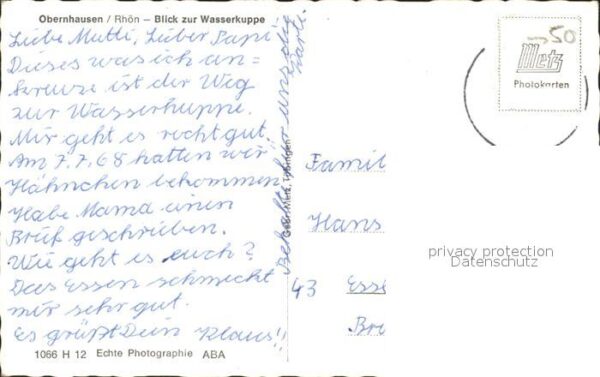 Obernhausen / Rhön – Blick zur Wasserkuppe
Liebe Mutti, Lieber Papi
Dieses was ich an=
kreuze ist der Weg
zur Wasserkuppe.
Mir geht es recht gut.
Am 7.7.68 hatten wir
Hähnchen bekommen
Habe Mama einen
Brief geschrieben.
Wie geht es euch?
Das Essen schmeckt
mir sehr gut.
Es grüßt Dein Klaus!!
1066 H 12 Echte Photographie ABA
für uns die
Karte.
Metz, Tübingen
50
Metz
Photokarten
Famil
Hans
43 Esse
Br
privacy protection
Datenschutz